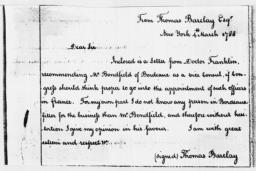 From Thomas Barclay Esqr.
New York 4th March 1788
Dear Sir
Inclosed is a Letter from Doctor Franklin,
recommending Mr Bondfield of Bordeaux as a vice Consul, if Con-
gress should think proper to go into the appointment of such officers
in France. For my own part I do not know any person in Bordeaux
fitter for the business than Mr Bondfield, and therefore without hesi-
tation I give my opinion in his favour. I am with great
esteem and respect &c.
(signed) Thomas Barclay